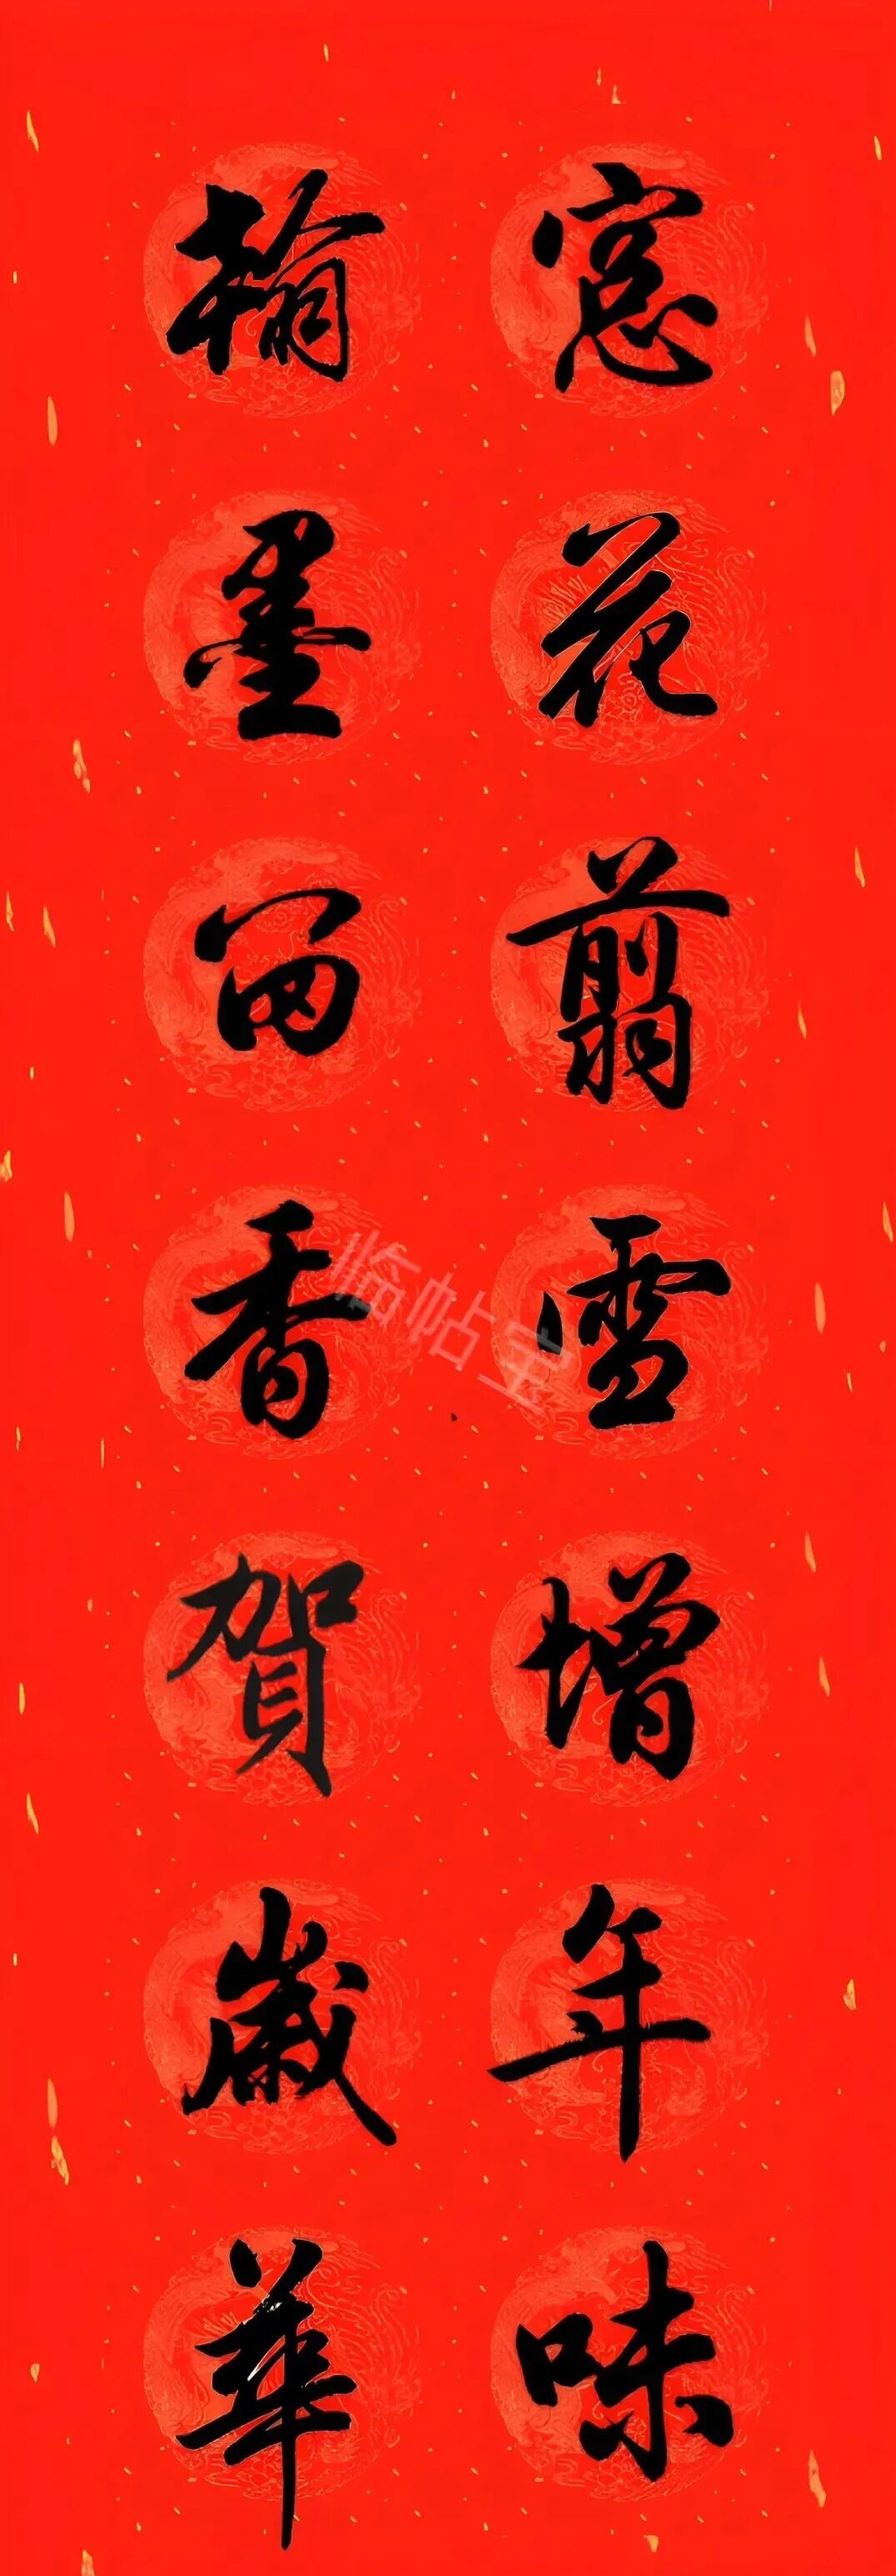 窓花翦雪增年味
翰墨留香賀歲華
临帖宝